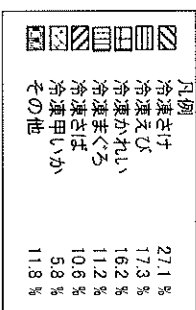 凡例
冷凍さけ 27.1 %
冷凍えび 17.3 %
冷凍かれい 16.2 %
冷凍まぐろ 11.2 %
冷凍さば 10.6 %
冷凍甲いか 5.8 %
その他 11.8 %